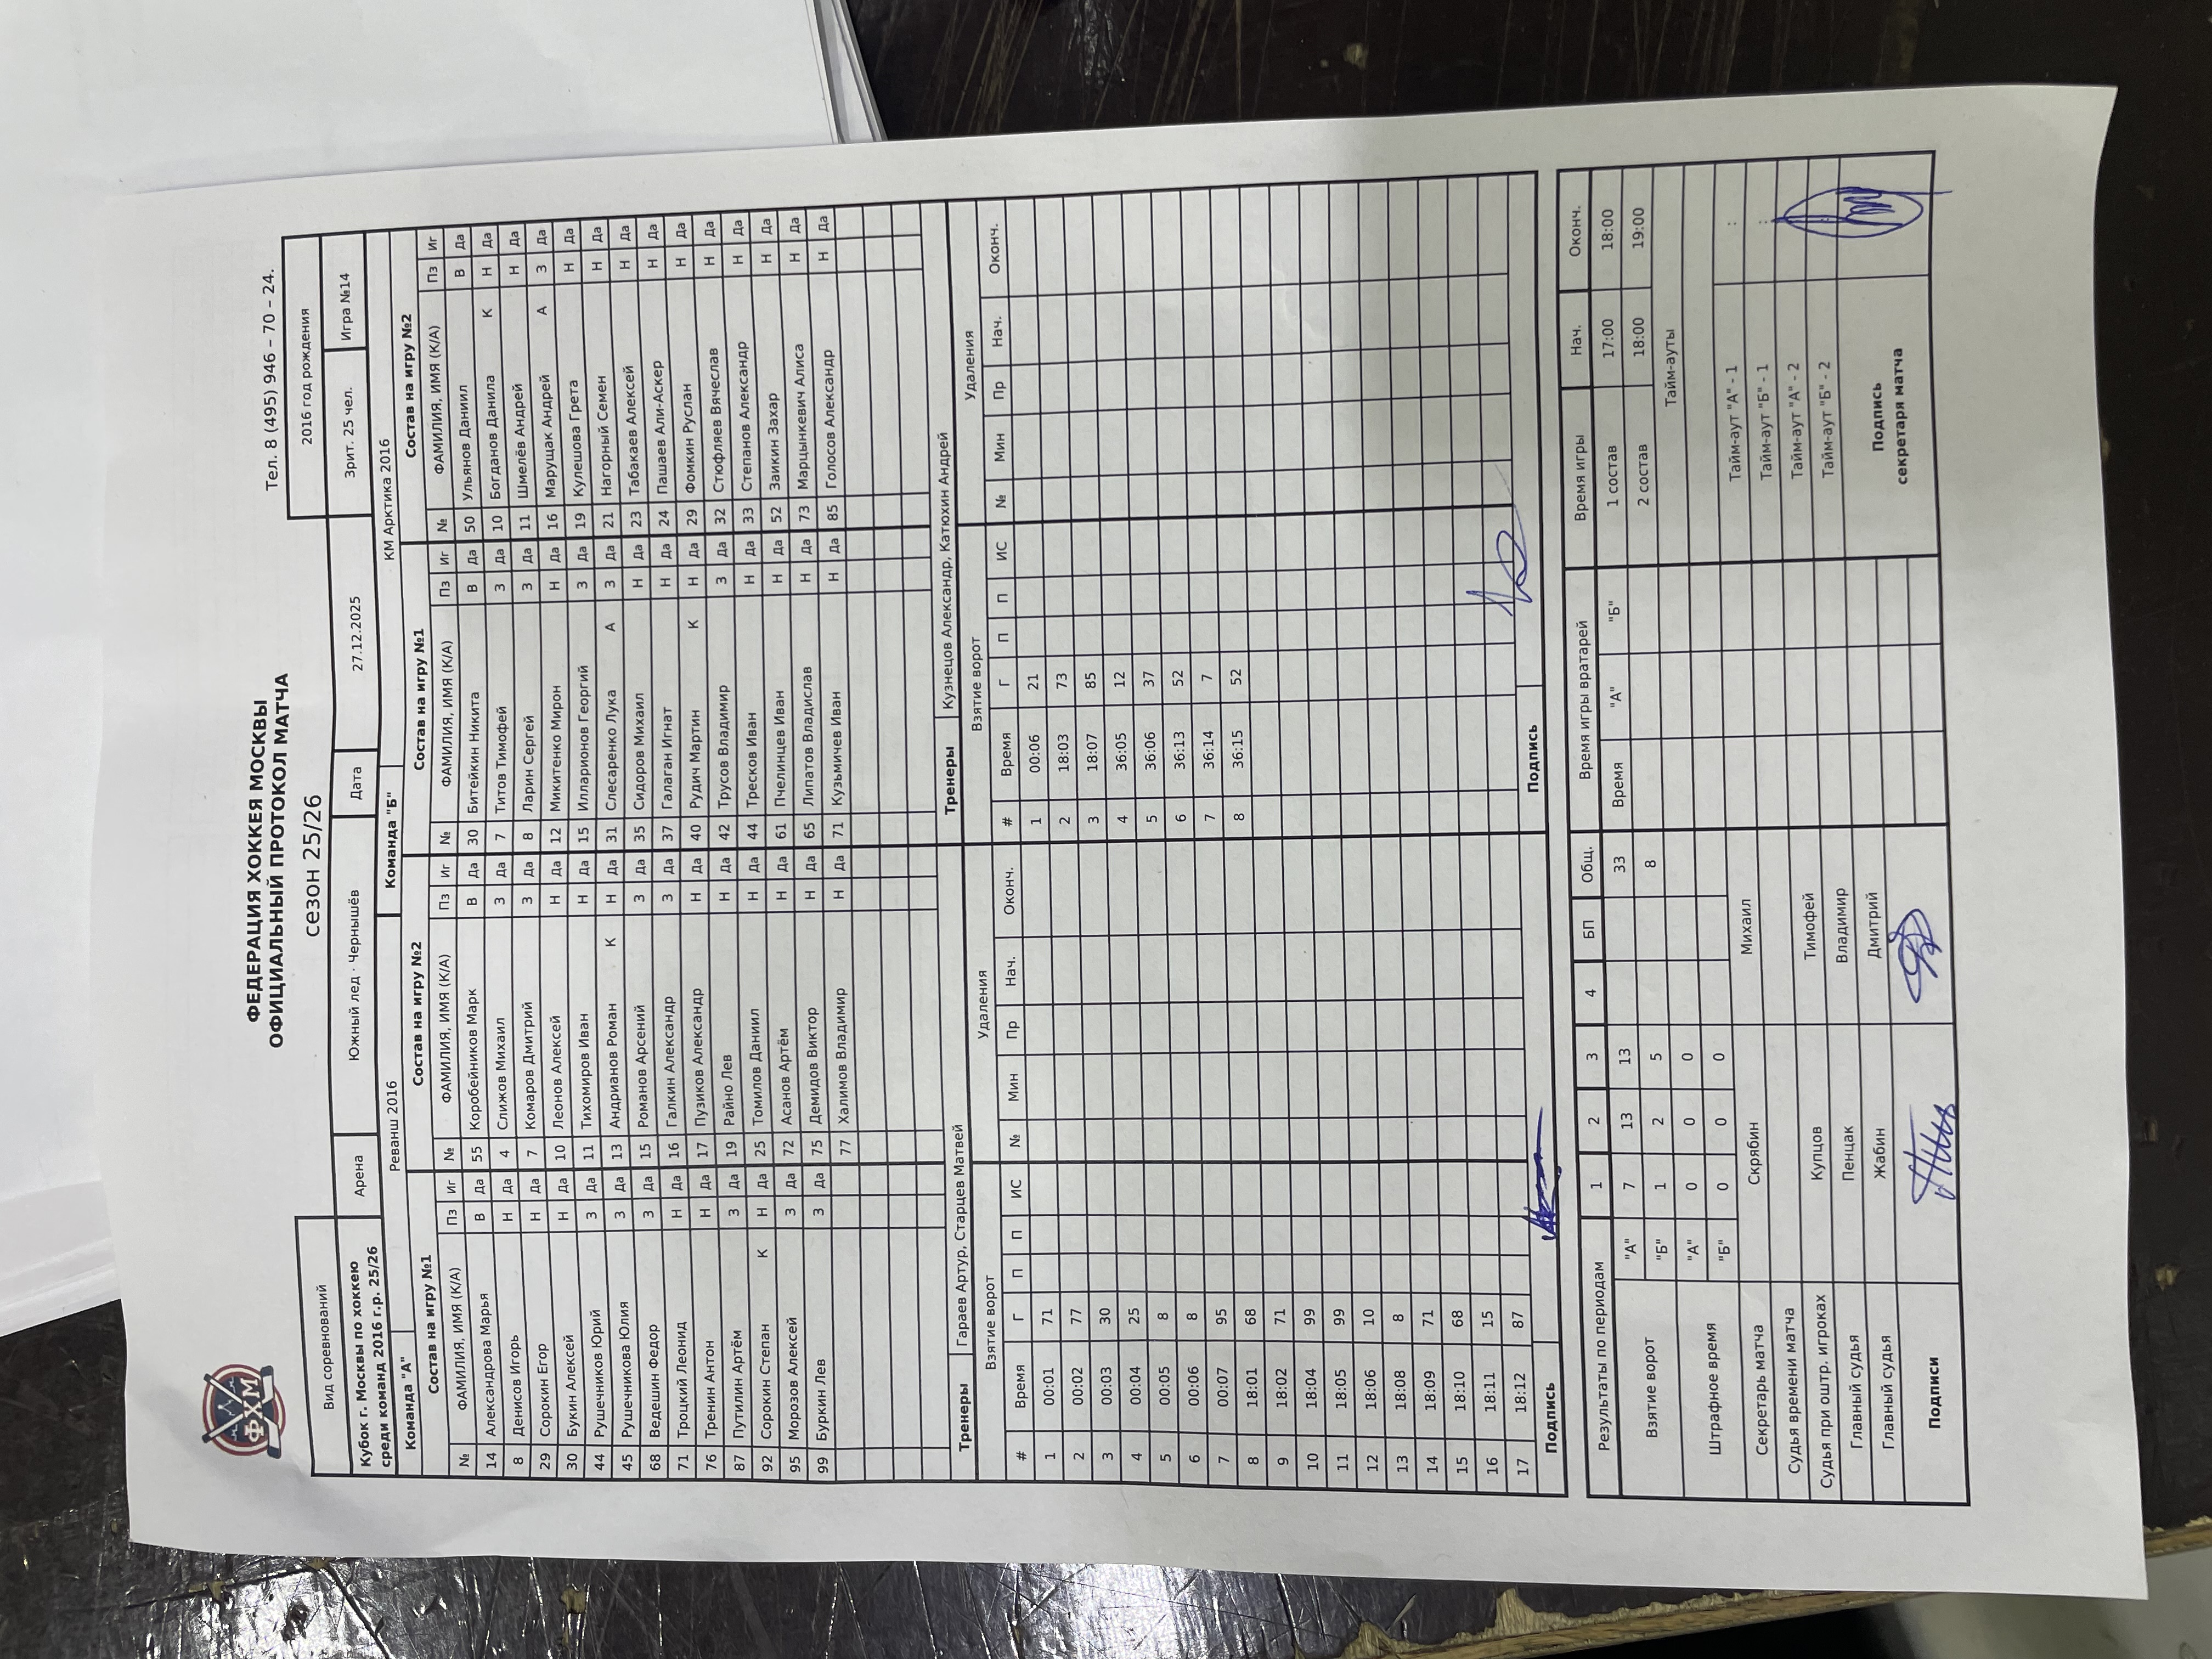 ФХМ
ФЕДЕРАЦИЯ ХОККЕЯ МОСКВЫ
ОФИЦИАЛЬНЫЙ ПРОТОКОЛ МАТЧА
сезон 25/26
Тел. 8 (495) 946 – 70 – 24.
Вид соревнований 2016 год рождения
Кубок г. Москвы по хоккею
среди команд 2016 г.р. 25/26
Арена Южный лед · Чернышёв Дата 27.12.2025 Зрит. 25 чел. Игра №14
Команда "А" Реванш 2016 Команда "Б" КМ Арктика 2016
Состав на игру №1 Состав на игру №2 Состав на игру №1 Состав на игру №2
№ ФАМИЛИЯ, ИМЯ (К/А) Пз Иг № ФАМИЛИЯ, ИМЯ (К/А) Пз Иг № ФАМИЛИЯ, ИМЯ (К/А) Пз Иг № ФАМИЛИЯ, ИМЯ (К/А) Пз Иг
14 Александрова Марья В Да 55 Коробейников Марк В Да 30 Битейкин Никита В Да 50 Ульянов Даниил В Да
8 Денисов Игорь Н Да 4 Слижов Михаил З Да 7 Титов Тимофей З Да 10 Богданов Данила К Н Да
29 Сорокин Егор Н Да 7 Комаров Дмитрий З Да 8 Ларин Сергей З Да 11 Шмелёв Андрей Н Да
30 Букин Алексей Н Да 10 Леонов Алексей Н Да 12 Микитенко Мирон Н Да 16 Марущак Андрей А З Да
44 Рушечников Юрий З Да 11 Тихомиров Иван Н Да 15 Илларионов Георгий З Да 19 Кулешова Грета Н Да
45 Рушечникова Юлия З Да 13 Андрианов Роман К Н Да 31 Слесаренко Лука А З Да 21 Нагорный Семен Н Да
68 Ведешин Федор З Да 15 Романов Арсений З Да 35 Сидоров Михаил Н Да 23 Табакаев Алексей Н Да
71 Троцкий Леонид Н Да 16 Галкин Александр З Да 37 Галаган Игнат Н Да 24 Пашаев Али-Аскер Н Да
76 Тренин Антон Н Да 17 Пузиков Александр Н Да 40 Рудич Мартин К Н Да 29 Фомкин Руслан Н Да
87 Путилин Артём З Да 19 Райно Лев Н Да 42 Трусов Владимир З Да 32 Стюфляев Вячеслав Н Да
92 Сорокин Степан К Н Да 25 Томилов Даниил Н Да 44 Тресков Иван Н Да 33 Степанов Александр Н Да
95 Морозов Алексей З Да 72 Асанов Артём Н Да 61 Пчелинцев Иван Н Да 52 Заикин Захар Н Да
99 Буркин Лев З Да 75 Демидов Виктор Н Да 65 Липатов Владислав Н Да 73 Марцынкевич Алиса Н Да
77 Халимов Владимир Н Да 71 Кузьмичев Иван Н Да 85 Голосов Александр Н Да
Тренеры Гараев Артур, Старцев Матвей Тренеры Кузнецов Александр, Катюхин Андрей
Взятие ворот Удаления Взятие ворот Удаления
# Время Г П П ИС № Мин Пр Нач. Оконч. # Время Г П П ИС № Мин Пр Нач. Оконч.
1 00:01 71 1 00:06 21
2 00:02 77 2 18:03 73
3 00:03 30 3 18:07 85
4 00:04 25 4 36:05 12
5 00:05 8 5 36:06 37
6 00:06 8 6 36:13 52
7 00:07 95 7 36:14 7
8 18:01 68 8 36:15 52
9 18:02 71
10 18:04 99
11 18:05 99
12 18:06 10
13 18:08 8
14 18:09 71
15 18:10 68
16 18:11 15
17 18:12 87
Подпись Подпись
Результаты по периодам 1 2 3 4 БП Общ. Время игры вратарей Время игры Нач. Оконч.
Взятие ворот "А" 7 13 13 33 Время "А" "Б" 1 состав 17:00 18:00
"Б" 1 2 5 8 2 состав 18:00 19:00
Штрафное время "А" 0 0 0 Тайм-ауты
"Б" 0 0 0
Секретарь матча Скрябин Михаил Тайм-аут "А" - 1 :
Судья времени матча Тайм-аут "Б" - 1 :
Судья при оштр. игроках Купцов Тимофей Тайм-аут "А" - 2
Главный судья Пенцак Владимир Тайм-аут "Б" - 2
Главный судья Жабин Дмитрий
Подписи Подпись
секретаря матча